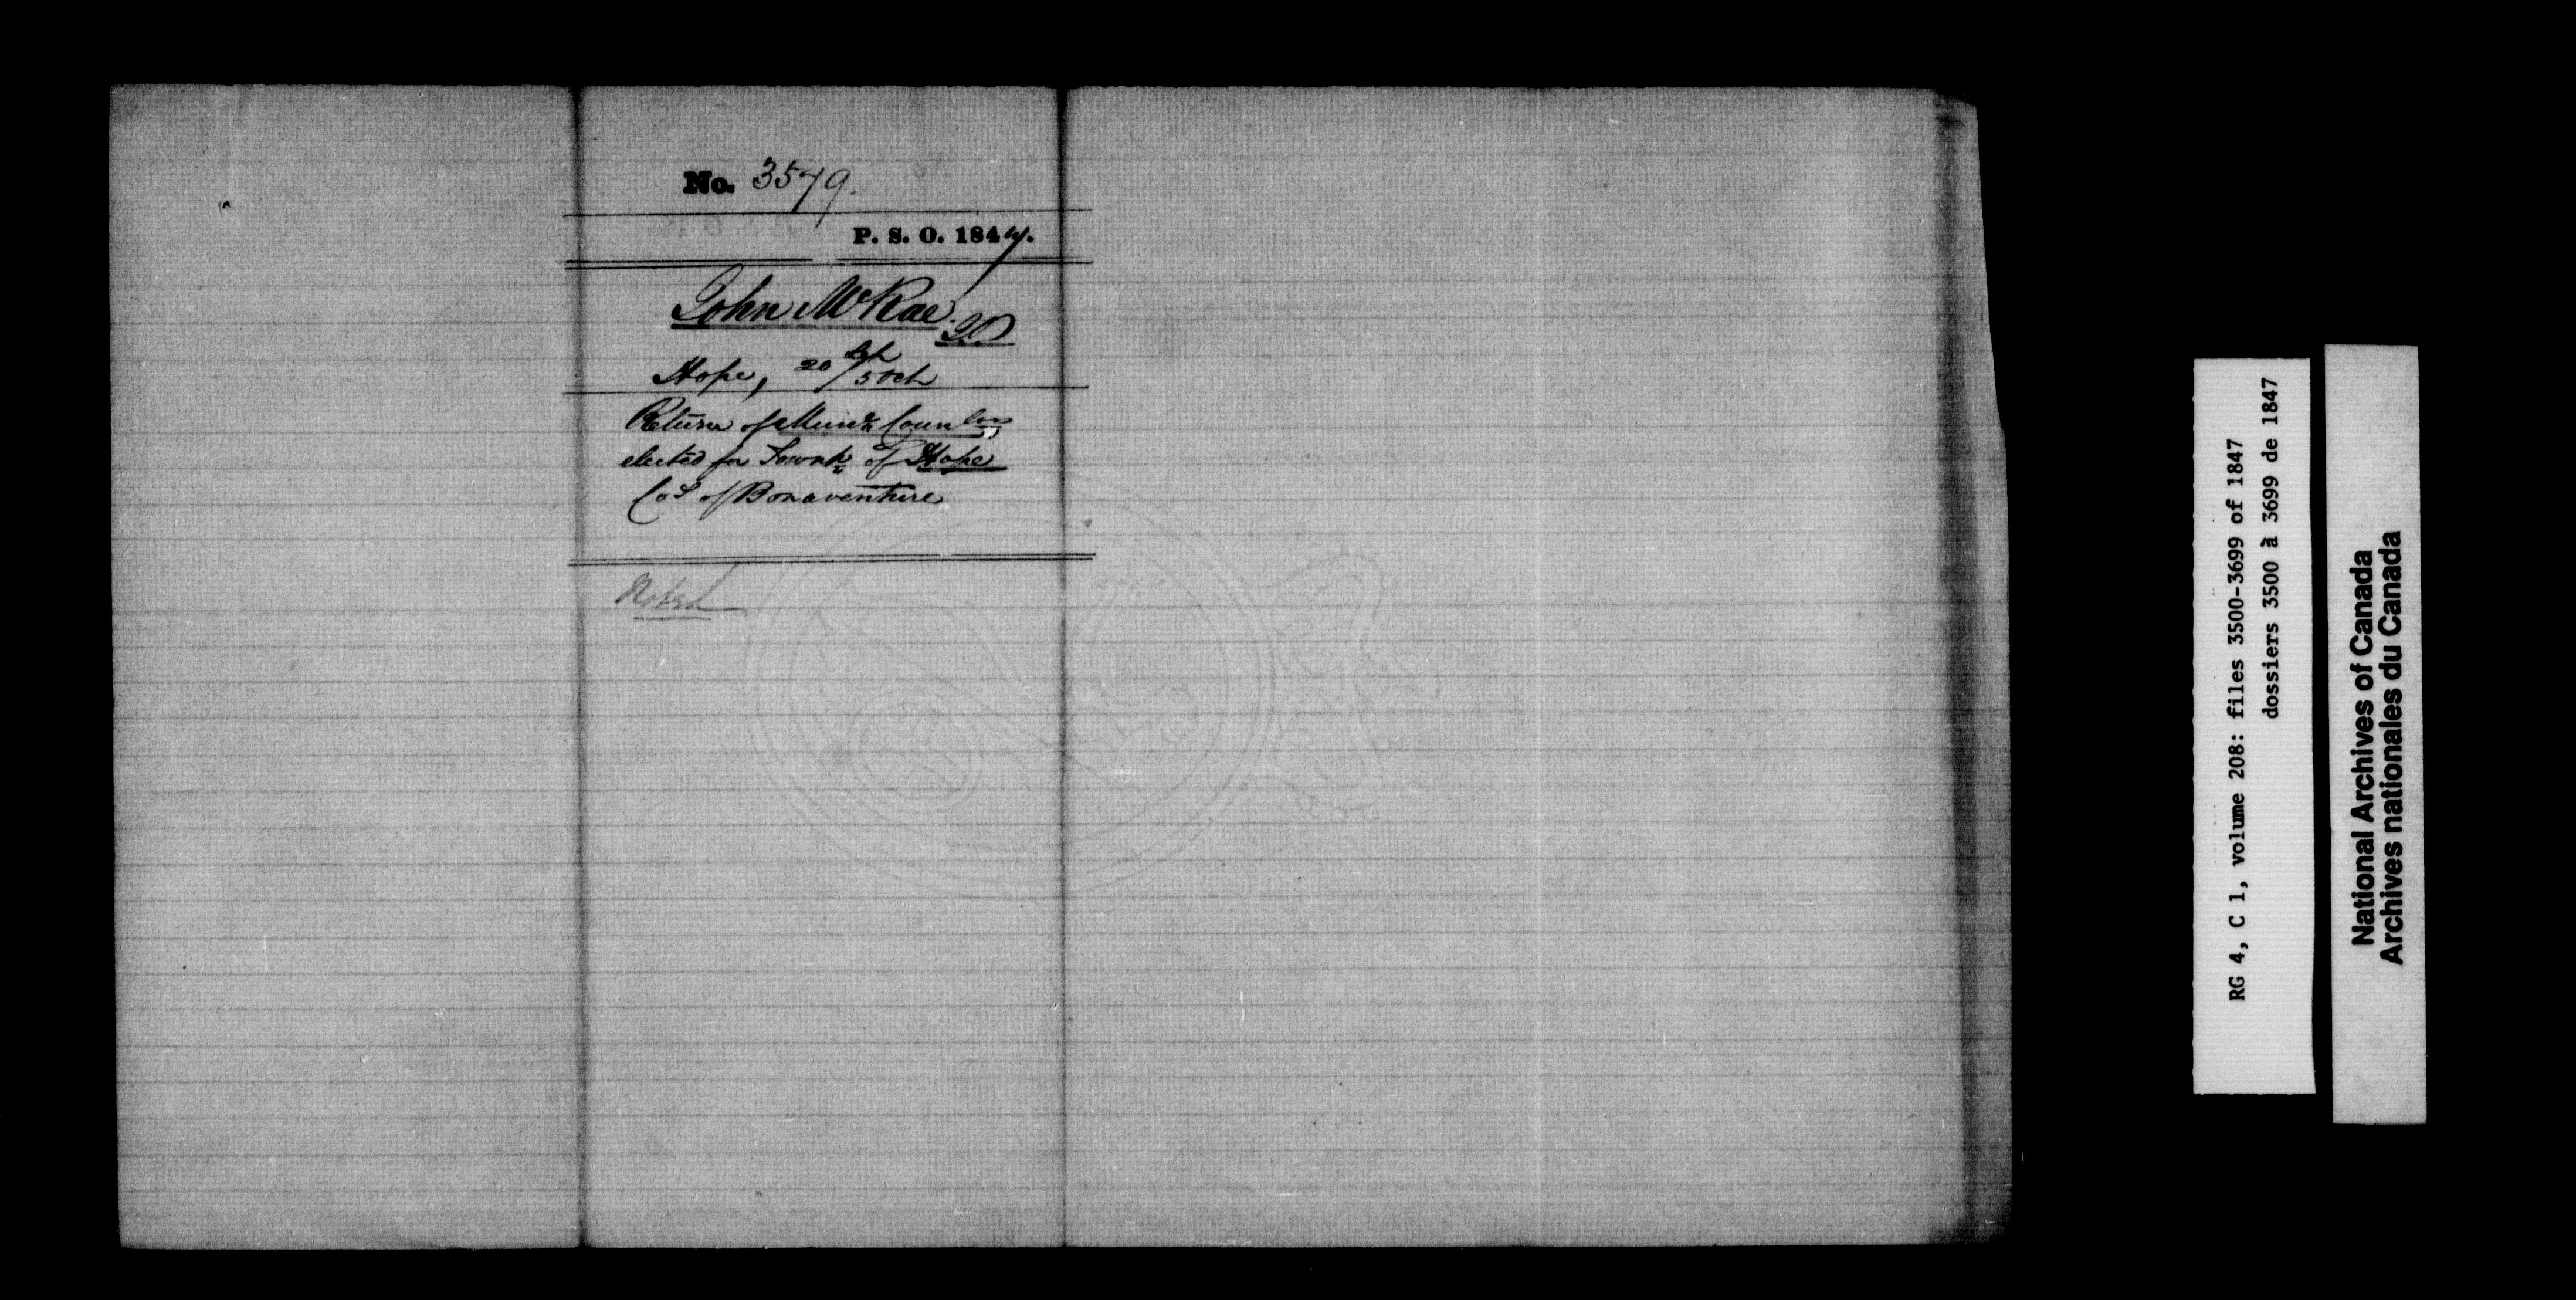 No. 3579.
P. S. O. 1847.
John McRae
Hope, 20 / 5 Octr
Return of Munl. Counlrs,
elected for Townp. of Hope
Coy of Bonaventure
Noted
RG 4, C 1, volume 208: files 3500-3699 of 1847
dossiers 3500 à 3699 de 1847
National Archives of Canada
Archives nationales du Canada